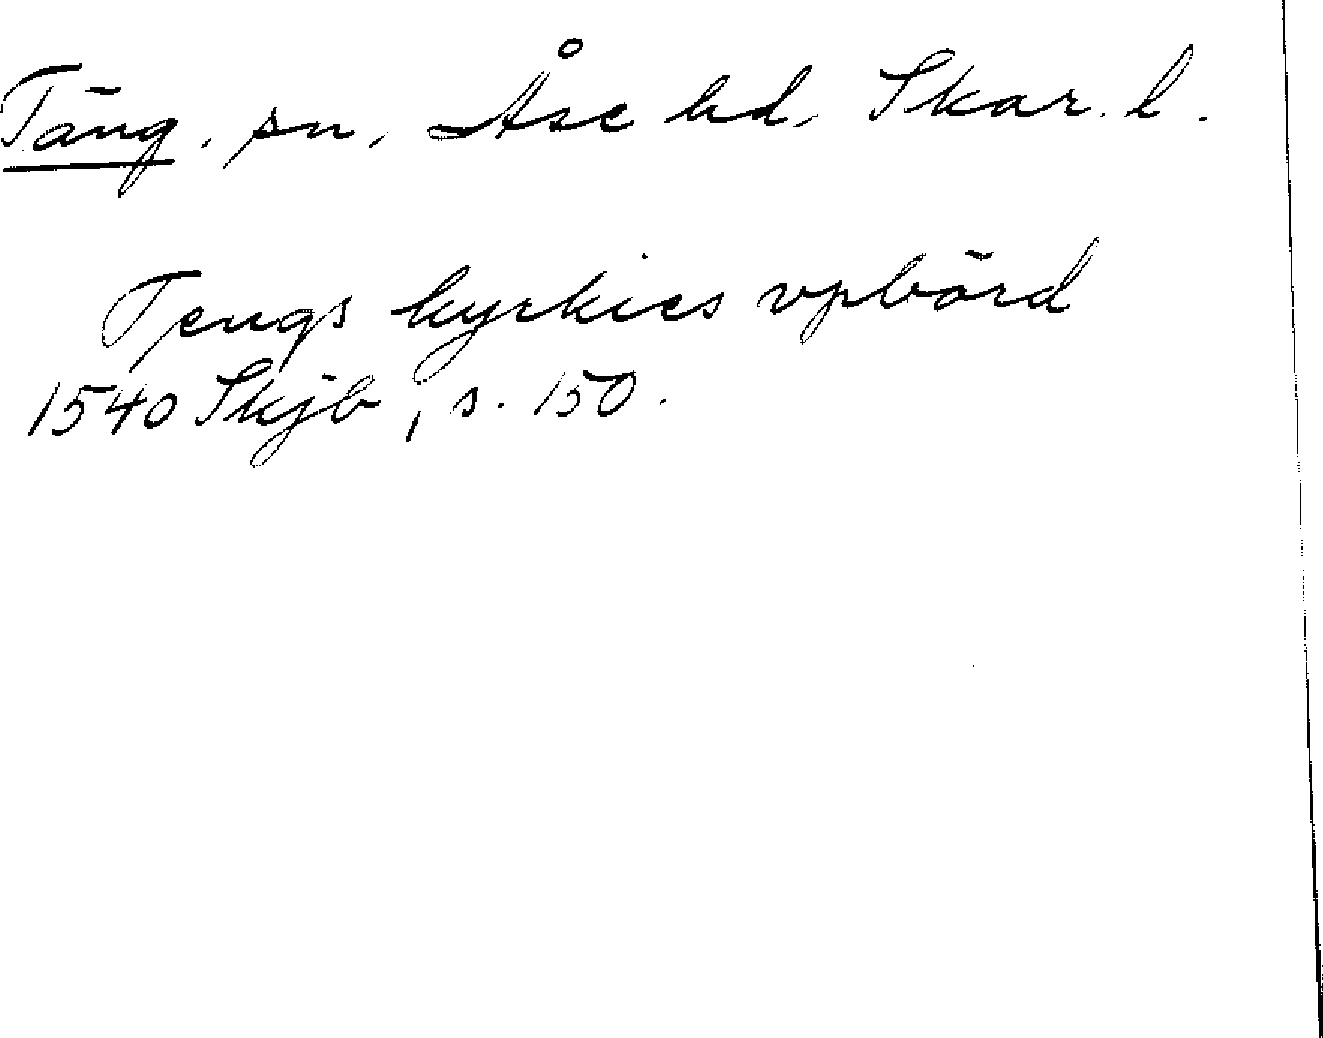 Täng. sn. Åse hd. Skar. l.
Tengs kyrkies vpbörd
1540 Skjb, s. 150.